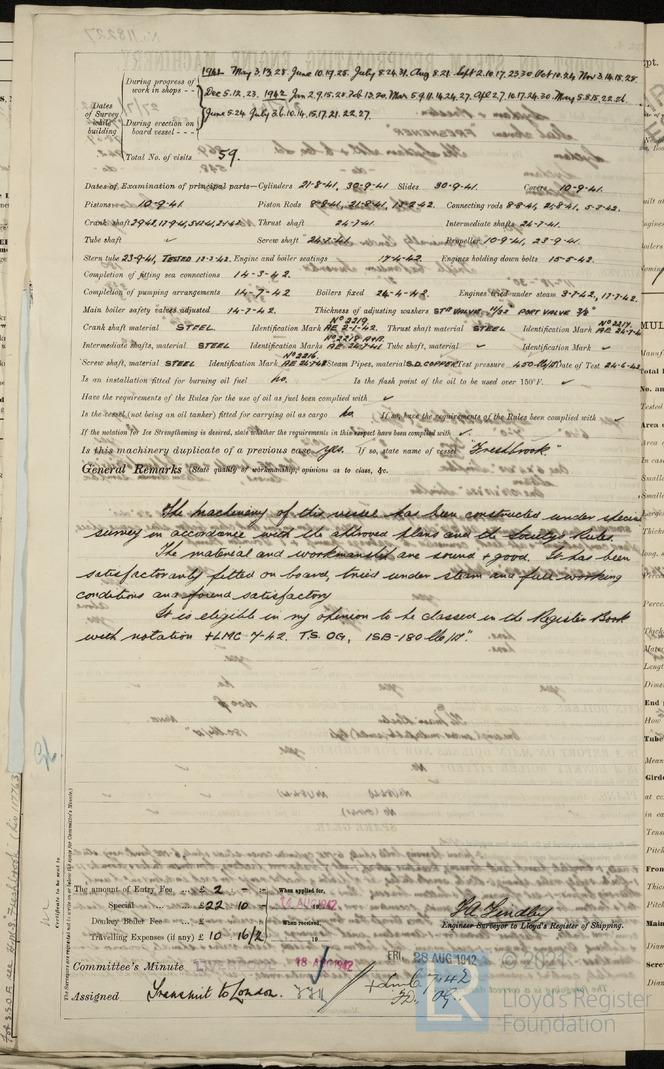 During progress of work in shops - -
1941. May 3, 13, 28. June 10, 19, 25. July 8, 24, 31. Aug 8, 21. Sept 2, 10, 17, 23, 30 Oct 10, 24 Nov 3, 14, 18, 25
Dec 5, 12, 23. 1942 Jan 2, 9, 15, 28. Feb 13, 20. Mar 5, 9, 11, 14, 24, 27. Apl 2, 7, 10, 17, 24, 30 May 5, 8, 15, 22, 26
Dates of Survey while building
During erection on board vessel - - -
June 5, 24. July 3, 6, 10, 14, 15, 17, 21, 22, 27.
Total No. of visits 59.
Dates of Examination of principal parts—Cylinders 21-8-41, 30-9-41 Slides 30-9-41. Covers 10-9-41.
Pistons 10-9-41. Piston Rods 8-8-41, 21-8-41, 13-2-42. Connecting rods 8-8-41, 21-8-41, 5-3-42.
Crank shaft Thrust shaft 24-7-41. Intermediate shafts 24-7-41.
Tube shaft ✓ Screw shaft 24-7-41. Propeller 10-9-41, 23-9-41.
Stern tube 23-9-41, TESTED 13-3-42. Engine and boiler seatings 17-4-42. Engines holding down bolts 15-5-42.
Completion of fitting sea connections 14-3-42.
Completion of pumping arrangements 14-7-42 Boilers fixed 24-4-42. Engines tried under steam 3-7-42, 17-7-42.
Main boiler safety valves adjusted 14-7-42. Thickness of adjusting washers STD VALVE PORT VALVE 3/8"
Crank shaft material STEEL. Identification Mark No 2219. AE 2-1-42. Thrust shaft material STEEL Identification Mark No 2217. AE 24-7-4
Intermediate shafts, material STEEL Identification Marks No 2218 A&B. AE 24-7-41 Tube shaft, material ✓ Identification Mark ✓
Screw shaft, material STEEL Identification Mark No 2216. AE 24-7-41 Steam Pipes, material S.D. COPPER Test pressure 400 lb/□" Date of Test 24-6-42
Is an installation fitted for burning oil fuel no. Is the flash point of the oil to be used over 150°F. ✓
Have the requirements of the Rules for the use of oil as fuel been complied with ✓
Is the vessel (not being an oil tanker) fitted for carrying oil as cargo no. If so, have the requirements of the Rules been complied with ✓
If the notation for Ice Strengthening is desired, state whether the requirements in this respect have been complied with ✓
Is this machinery duplicate of a previous case yes. If so, state name of vessel "Freshbrook"
General Remarks (State quality of workmanship, opinions as to class, &c.
The machinery of this vessel has been constructed under special
survey in accordance with the approved plans and the Society's Rules.
The material and workmanship are sound & good. It has been
satisfactorily fitted on board, tried under steam and full working
conditions and found satisfactory
It is eligible in my opinion to be classed in the Register Book
with notation +LMC 7-42. T.S. OG, 1SB-180 lb/□".
Certificate to be sent to
(The Surveyors are requested not to write on or below the space for Committee's Minute.)
The amount of Entry Fee ... £ 2 : - : - When applied for,
Special ... £22 : 10 : - 14 AUG 1942
Donkey Boiler Fee ... £ When received,
Travelling Expenses (if any) £ 10 : 16/2 19
J. A. Findlay
Engineer Surveyor to Lloyd's Register of Shipping.
Committee's Minute LIVERPOOL 18 AUG 1942
FRI. 28 AUG 1942
Assigned Transmit to London.
+LMC 7.42
OG.
© 2021
Lloyd's Register
Foundation